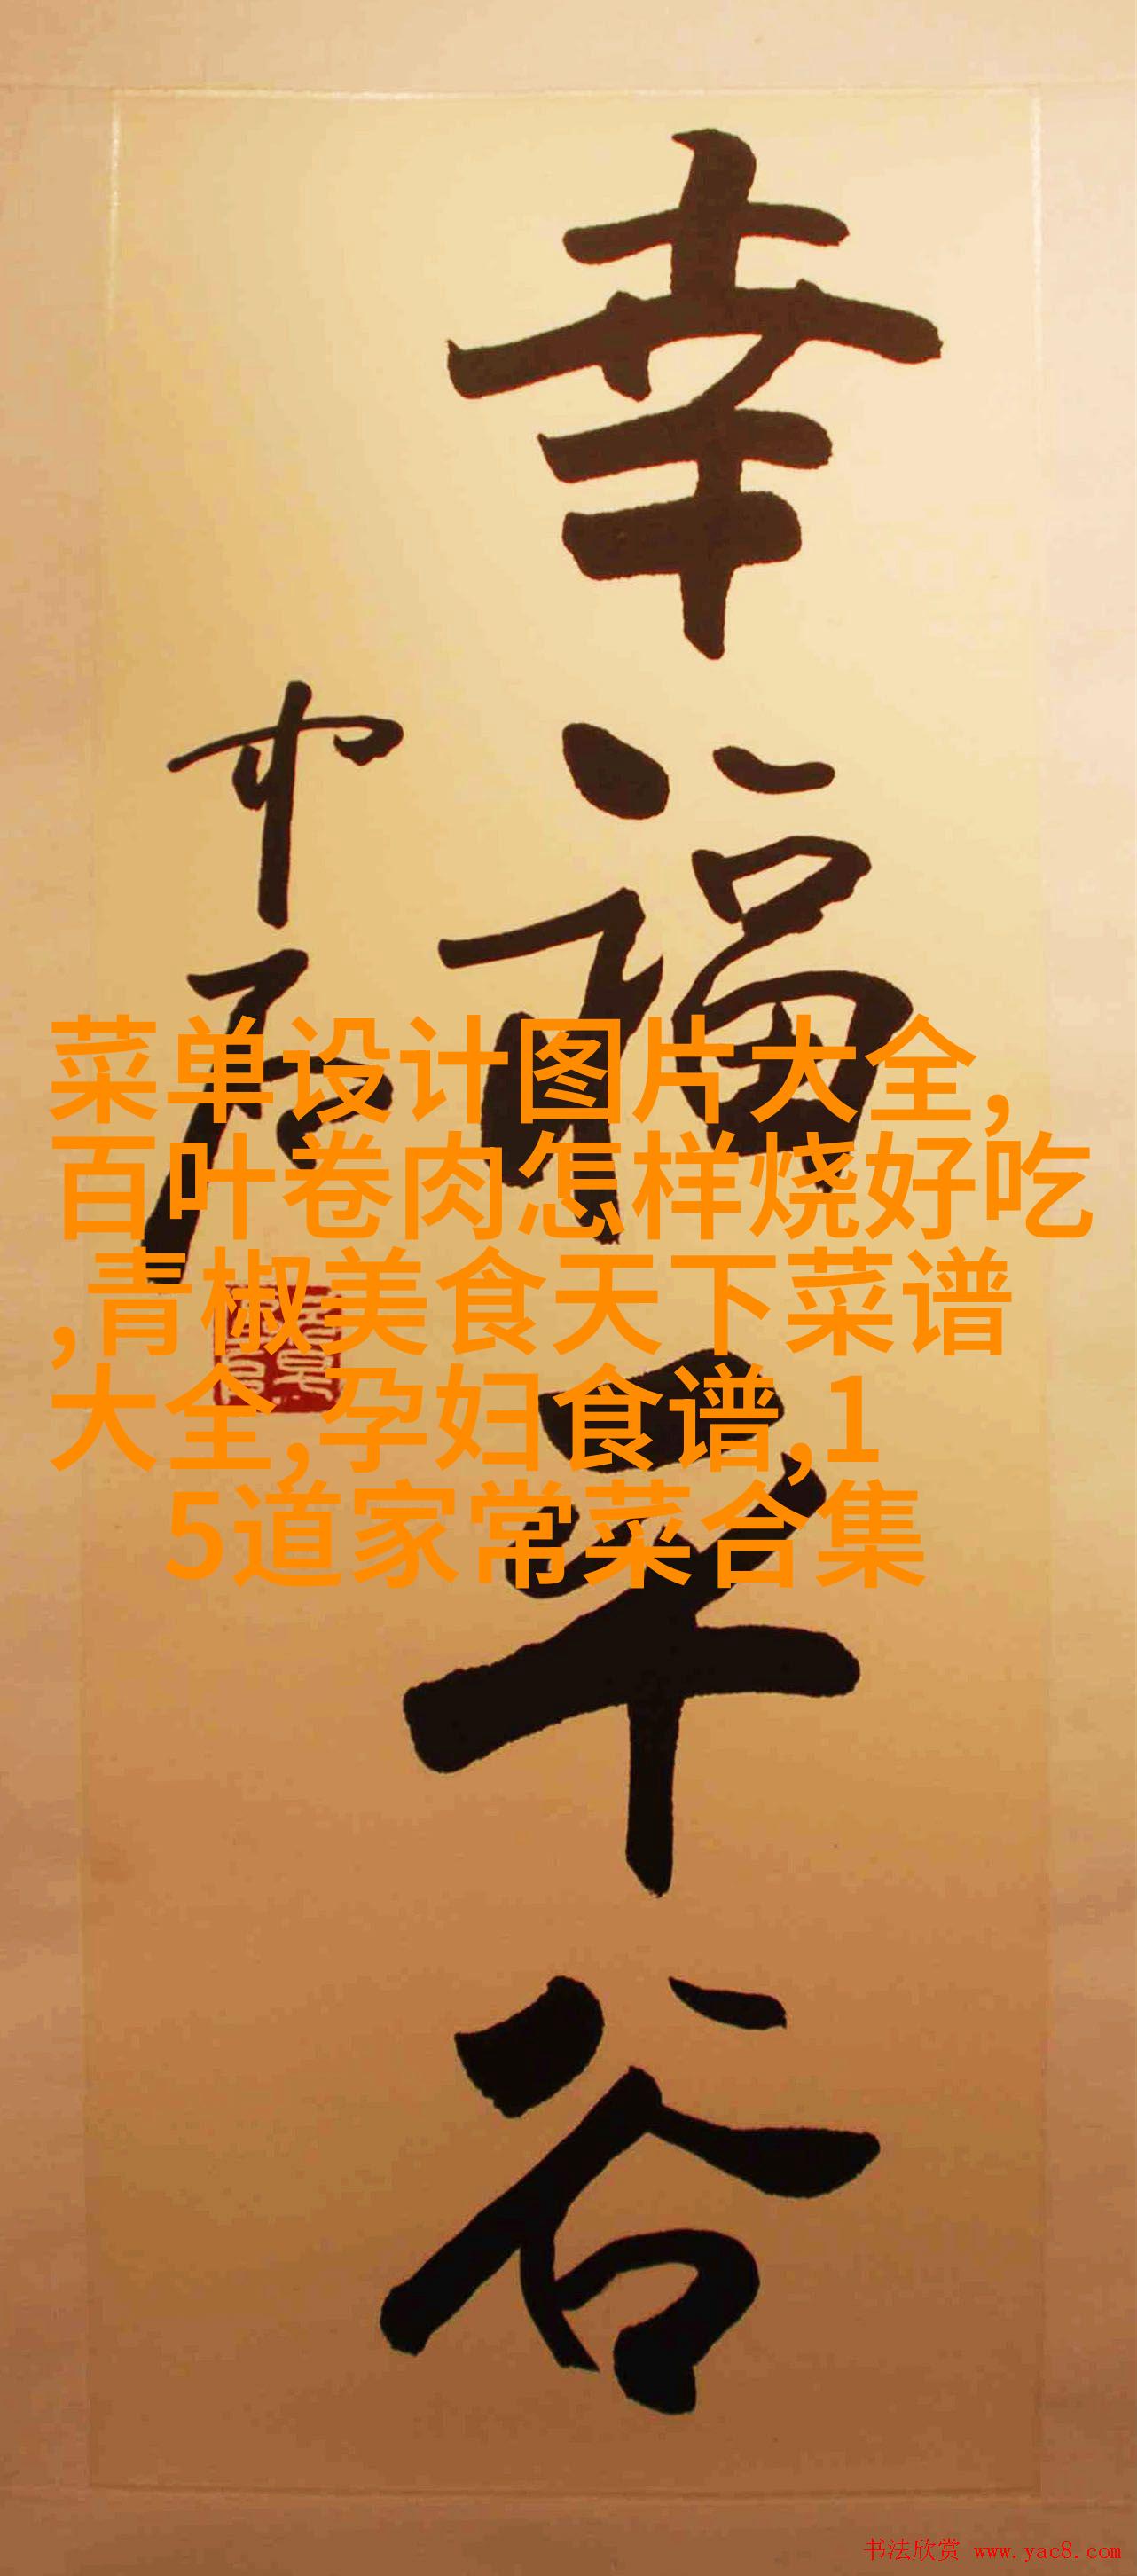 幸福平谷
菜单设计图片大全,
百叶卷肉怎样烧好吃
,青椒美食天下菜谱
大全,孕妇食谱,1
5道家常菜合集
书法欣赏 www.yac8.com